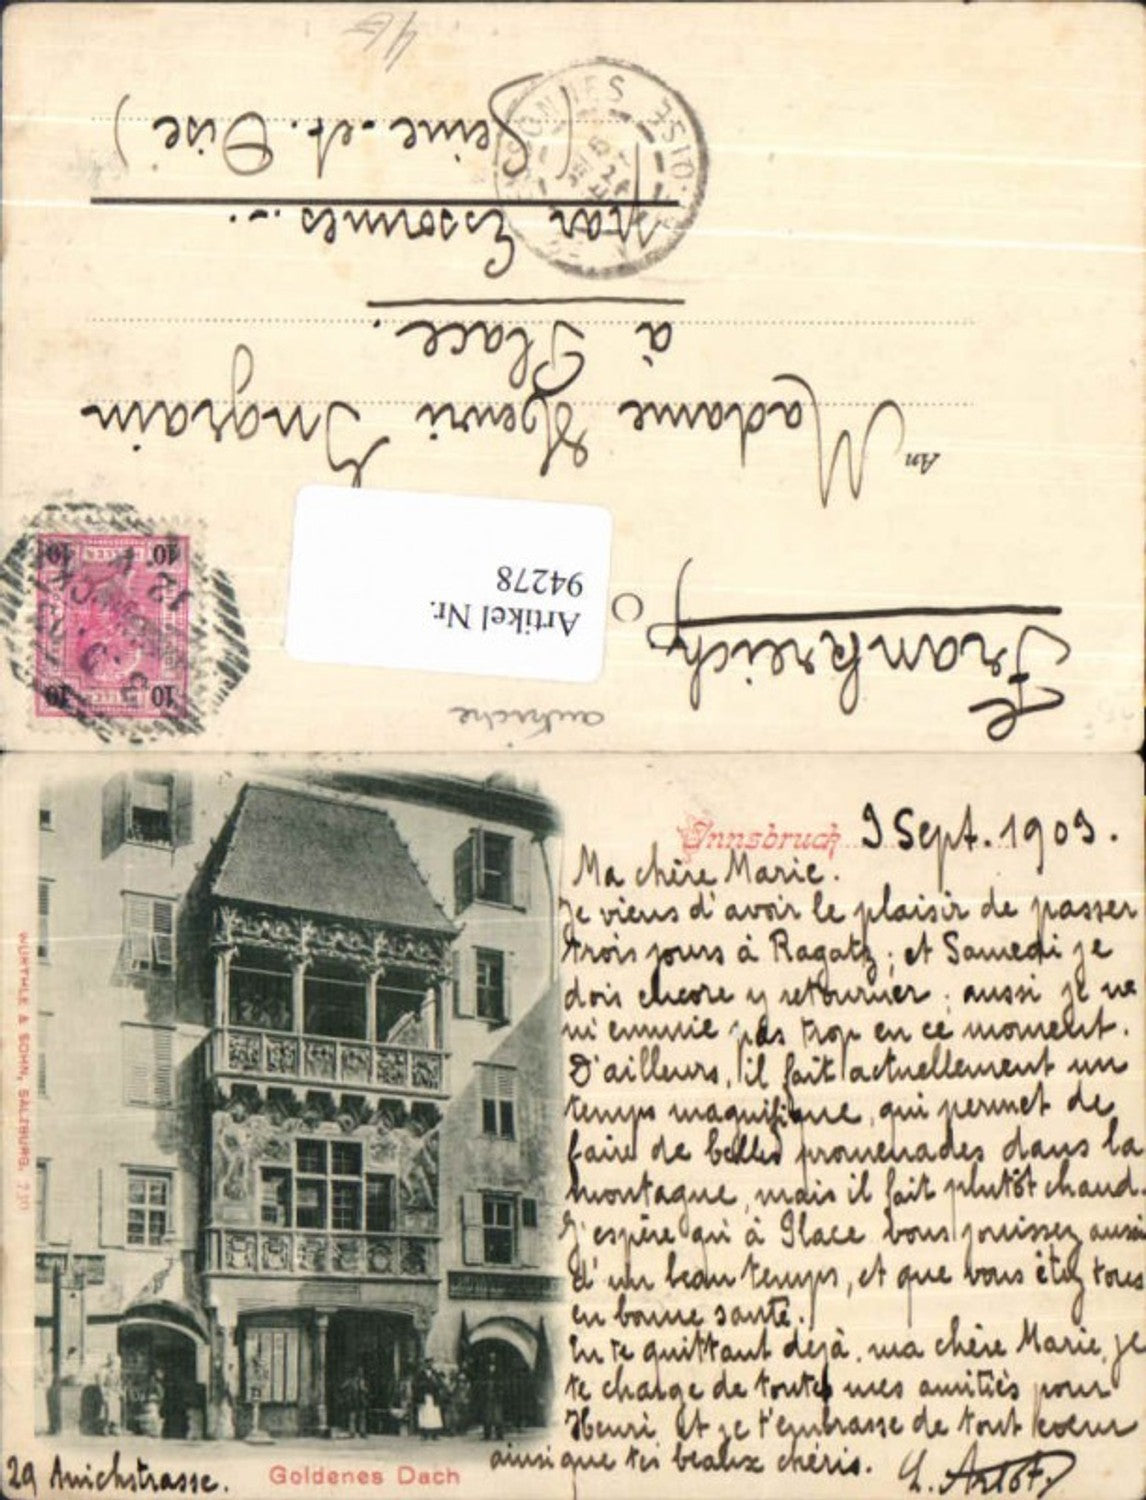 Frankreich
autriche
Artikel Nr.
94278
10 10
10 10
An Madame Henri Ingrain
à Place.
par Essonnes.
(Seine-et-Oise)
Innsbruck 9 Sept. 1903.
Ma chère Marie.
Je viens d'avoir le plaisir de passer
trois jours à Ragatz; et Samedi je
dois encore y retourner; aussi je ne
m'ennuie pas trop en ce moment.
D'ailleurs, il fait actuellement un
temps magnifique, qui permet de
faire de belles promenades dans la
montagne, mais il fait plutôt chaud.
J'espère qu'à Place vous jouissez aussi
d'un beau temps, et que vous êtes tous
en bonne santé.
En te quittant déjà, ma chère Marie, je
te charge de toutes mes amitiés pour
Henri et je t'embrasse de tout coeur
ainsi que tes beaux chéris.
29 Anichstrasse.
Goldenes Dach
WÜRTHLE & SOHN, SALZBURG.